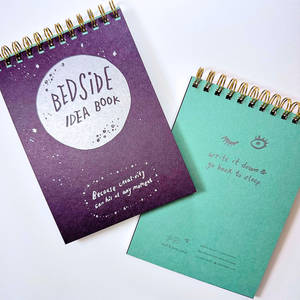 BEDSIDE
IDEA BOOK
Because creativity
can hit at any moment
write it down &
go back to sleep